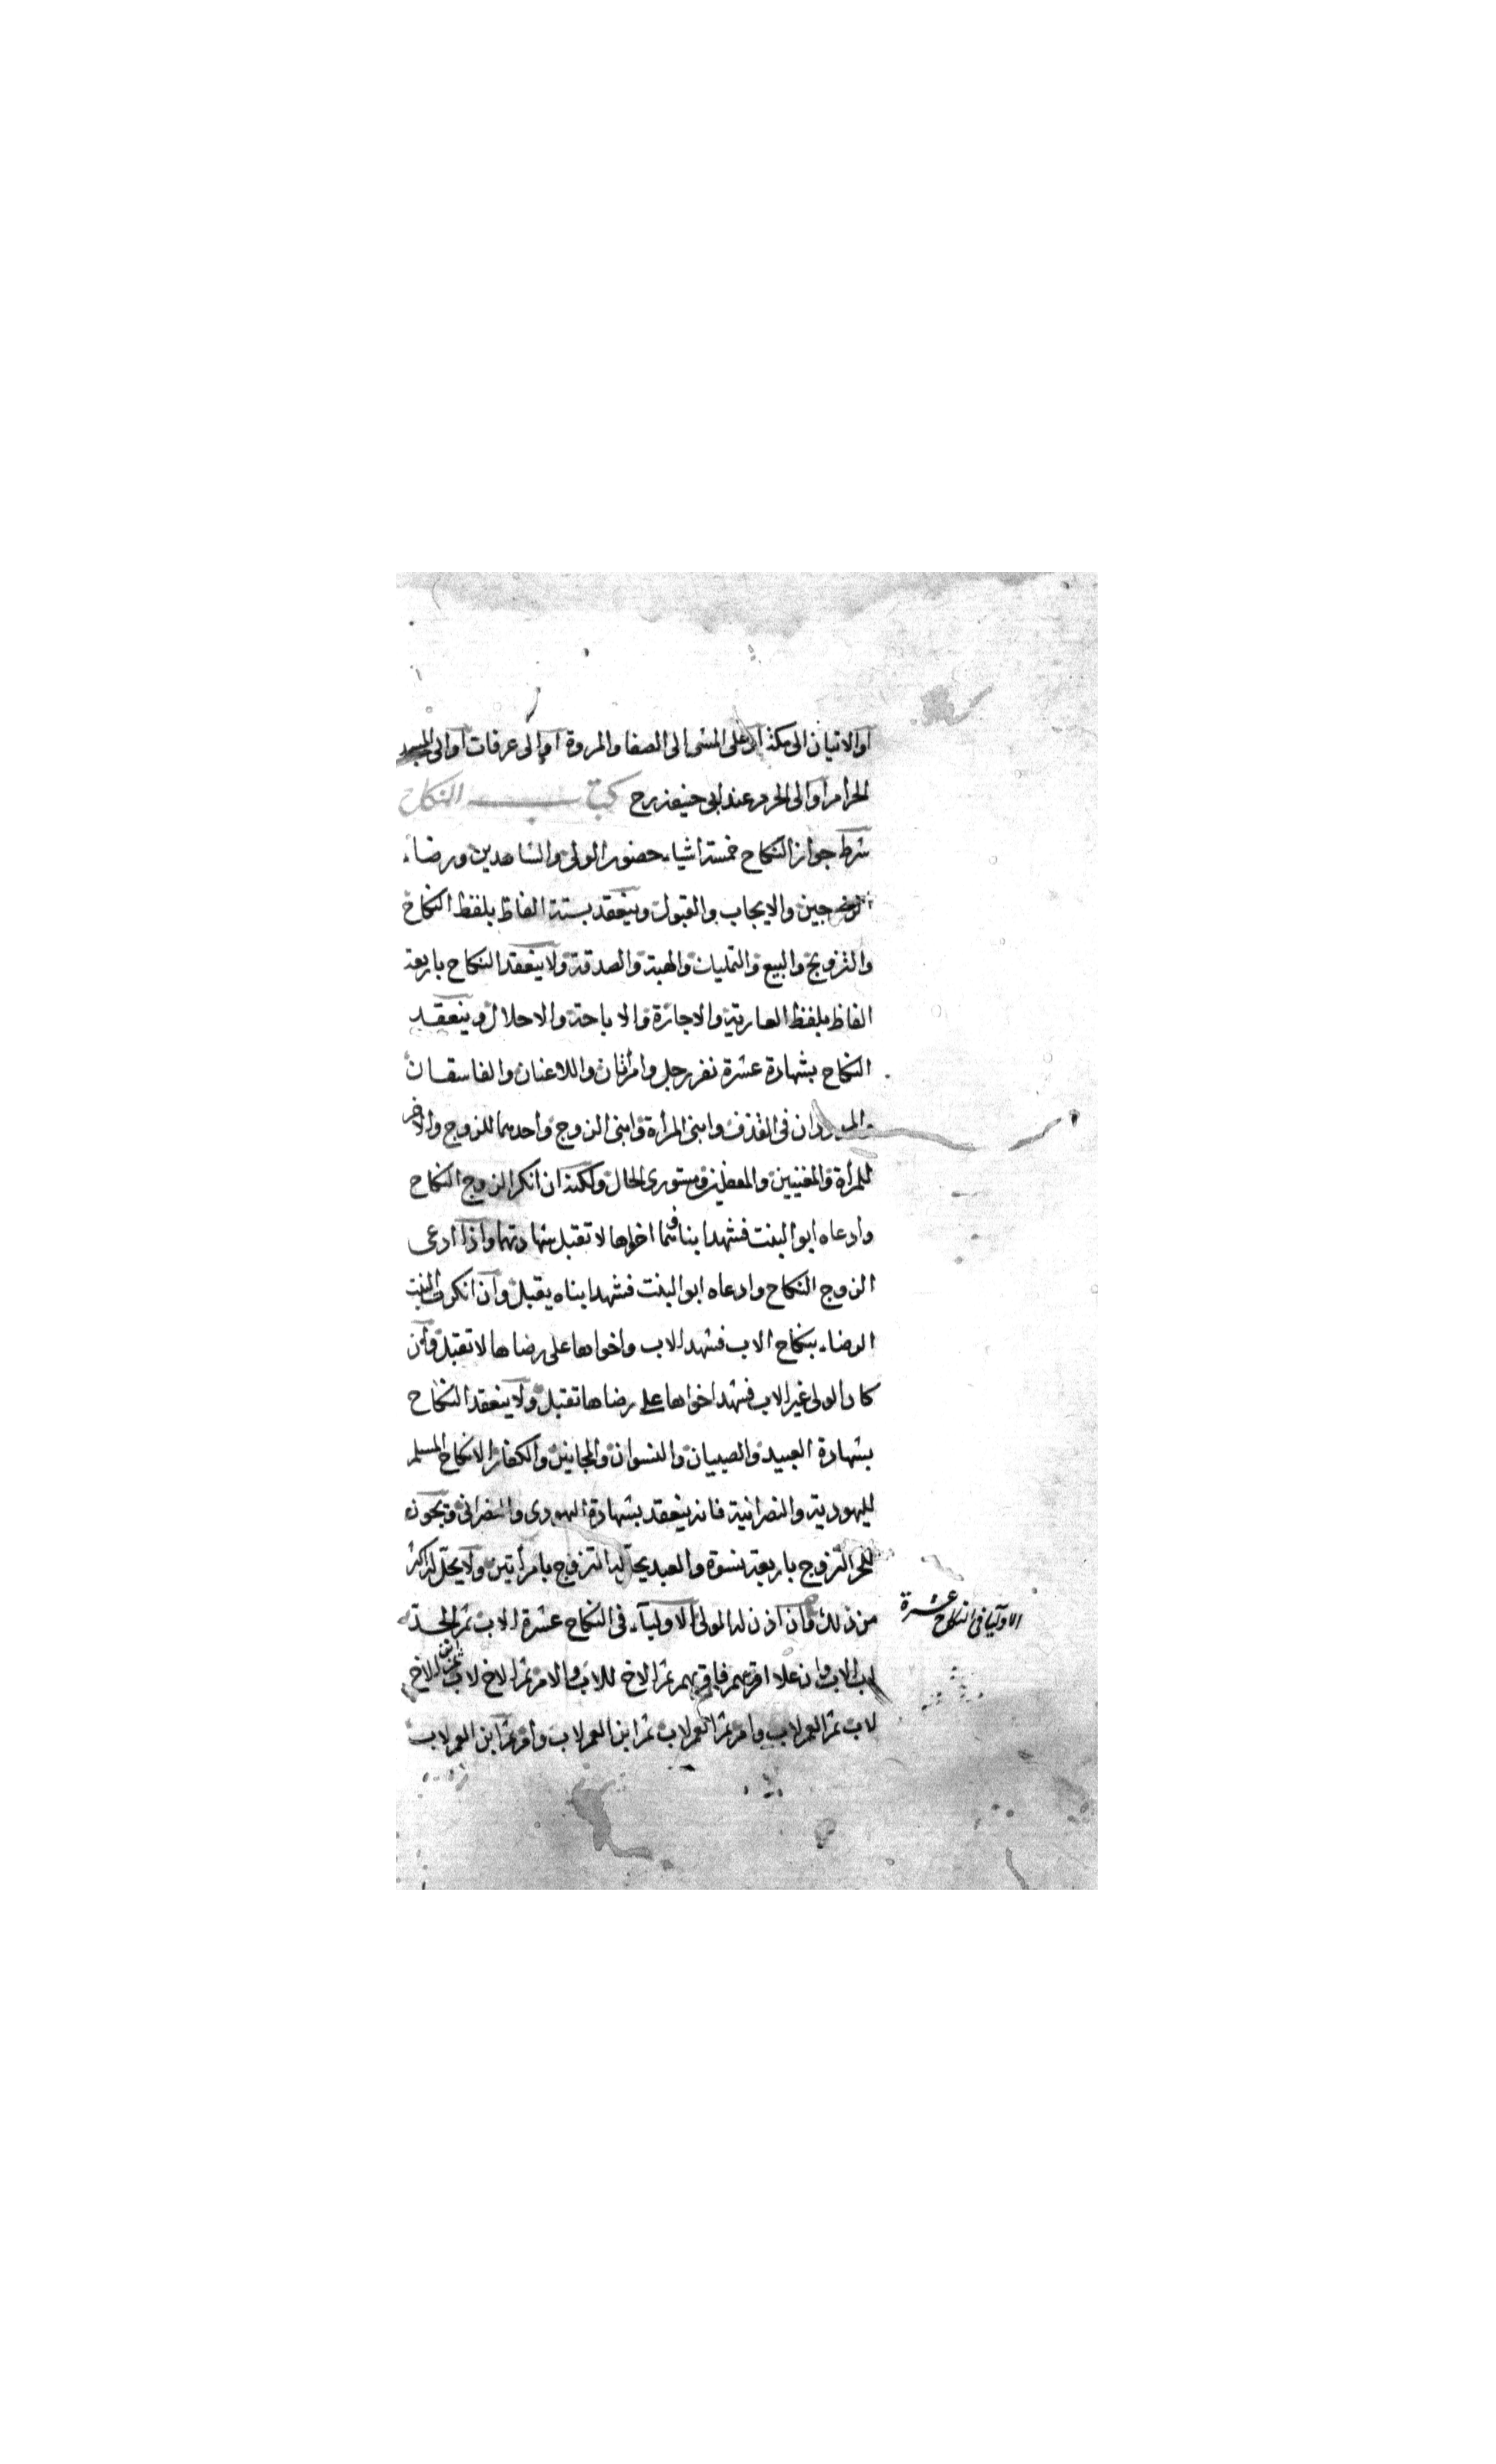 او الاتيان الى مكة او على المشى الى الصفا والمروة او الى عرفات او الى المسجد
الحرام او الى الحرم عند ابى حنيفة رح كتاب النكاح
شرط جواز النكاح خمسة اشياء حضور الولى والشاهدين ورضاء
الزوجين والايجاب والقبول وينعقد بستة الفاظ بلفظ النكاح
والتزويج والبيع والتمليك والهبة والصدقة ولا ينعقد النكاح باربعة
الفاظ بلفظ العارية والاجازة والاباحة والاحلال وينعقد
النكاح بشهادة عشرة نفر رجل وامرأتان واللاعنان والفاسقان
والمحدودان فى القذف وابنى المرأة وابنى الزوج واحدهما للزوج والاخر
للمرأة والمغنيين ومستورى الحال ولكنه ان انكر الزوج النكاح
وادعاه ابو البنت فشهد ابناه هما اخواها لا تقبل شهادتهما واذا ادعى
الزوج النكاح وادعاه ابو البنت فشهد ابناه يقبل وان انكرت البنت
الرضاء بنكاح الاب فشهد الاب واخواها على رضاها لا تقبل وان
كان الولى غير الاب فشهد اخواها على رضاها تقبل ولا ينعقد النكاح
بشهادة العبيد والصبيان والنسوان والمجانين والكفار الا نكاح المسلم
لليهودية والنصرانية فانه ينعقد بشهادة اليهودى والنصرانى ويجوز
للحر التزوج باربعة نسوة والعبد يحل له التزوج بامرأتين ولا يحل له اكثر
من ذلك وان اذن له المولى الاولياء فى النكاح عشرة الاب ثم الجد
الاولياء فى النكاح عشرة
اب الاب وان علا اقربهم فاقربهم ثم الاخ للاب والام ثم الاخ لاب ثم ابن الاخ
لاب ثم العم لاب وام ثم العم لاب ثم ابن العم لاب وام ثم ابن العم لاب